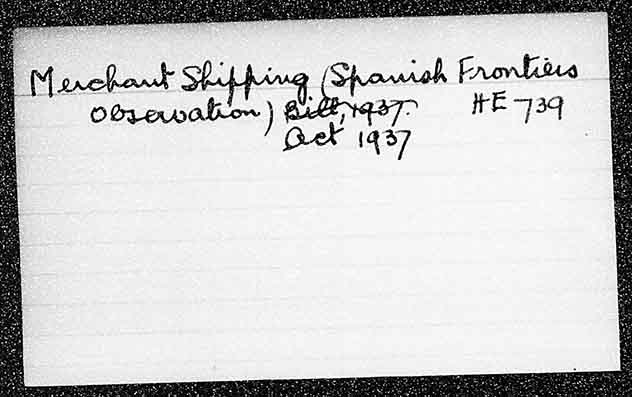 Merchant Shipping (Spanish Frontiers
Observation) Bill, 1937. HE 739
Act 1937